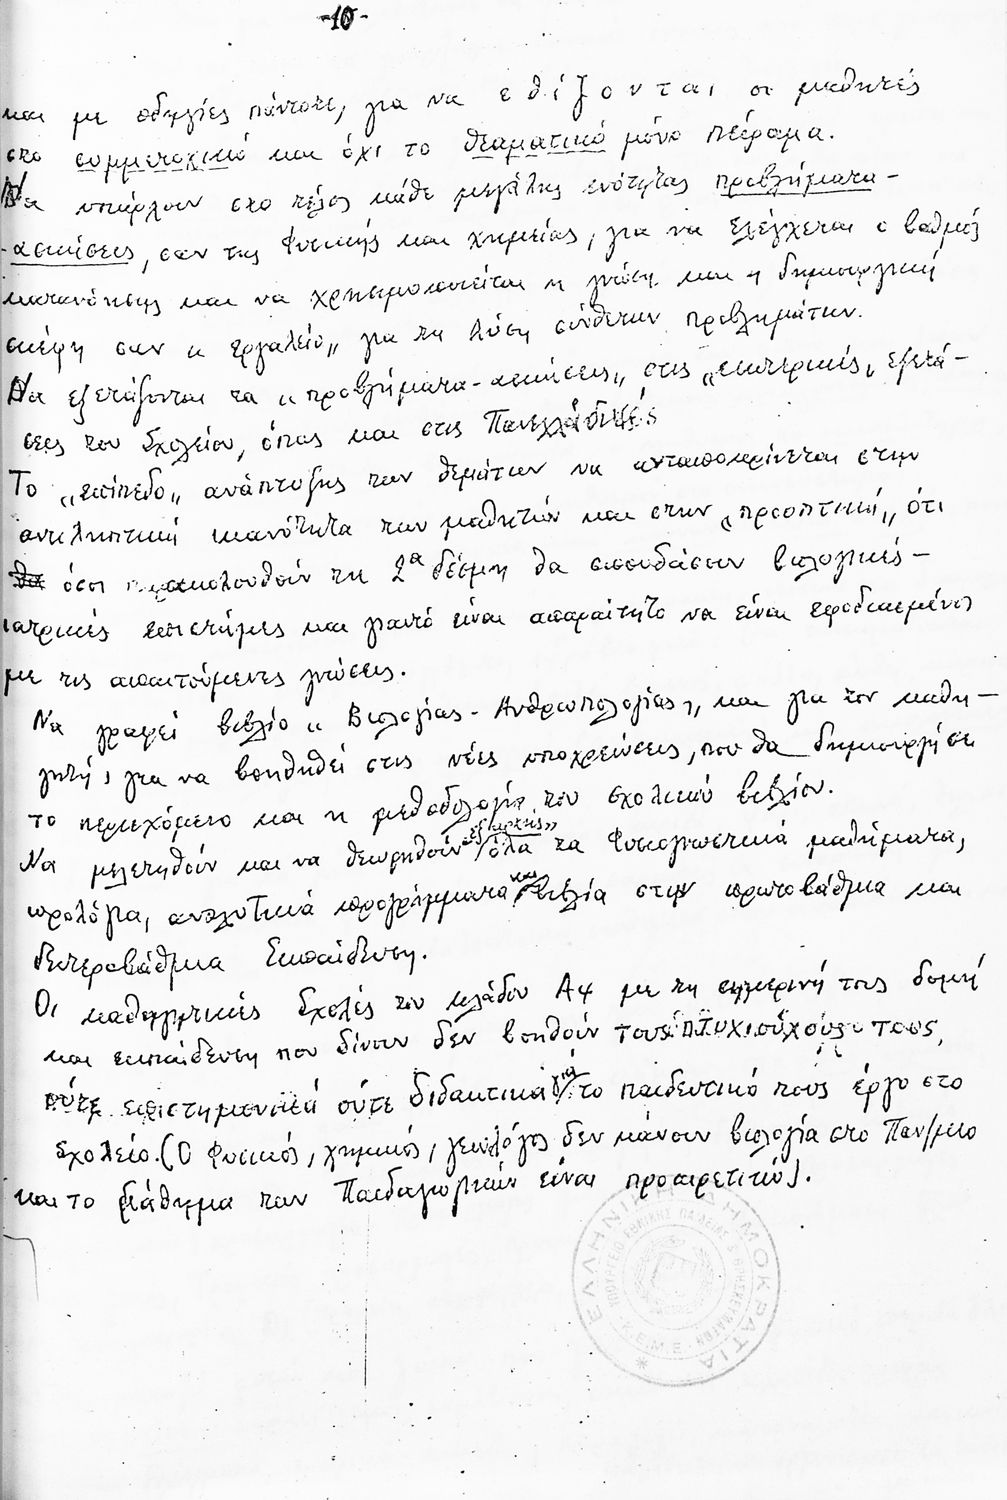 -10-
και με οδηγίες πάντοτε, για να εθίζονται οι μαθητές
στο συμμετοχικό και όχι το θεαματικό μόνο πείραμα.
Να υπάρχουν στο τέλος κάθε μεγάλης ενότητας προβλήματα-
-ασκήσεις, σαν της Φυσικής και χημείας, για να ελέγχεται ο βαθμός
κατανόησης και να χρησιμοποιείται η γνώση και η δημιουργική
σκέψη σαν "εργαλείο" για τη λύση σύνθετων προβλημάτων.
Να εξετάζονται τα "προβλήματα-ασκήσεις" στις "εσωτερικές" εξετά-
σεις του Σχολείου, όπως και στις Πανελλαδικές
Το "επίπεδο" ανάπτυξης των θεμάτων να ανταποκρίνεται στην
αντιληπτική ικανότητα των μαθητών και στην "προοπτική", ότι
όσοι παρακολουθούν τη 2α δέσμη θα σπουδάσουν βιολογικές-
ιατρικές επιστήμες και γιαυτό είναι απαραίτητο να είναι εφοδιασμένοι
με τις απαιτούμενες γνώσεις.
Να γραφεί βιβλίο "Βιολογίας-Ανθρωπολογίας", και για τον καθη-
γητή, για να βοηθηθεί στις νέες υποχρεώσεις, που θα δημιουργήσει
το περιεχόμενο και η μεθοδολογία του σχολικού βιβλίου.
Να μελετηθούν και να θεωρηθούν "εξ αρχής" όλα τα Φυσιογνωστικά μαθήματα,
ωρολόγια, αναλυτικά προγράμματα και βιβλία στην πρωτοβάθμια και
δευτεροβάθμια Εκπαίδευση.
Οι καθηγητικές Σχολές του κλάδου Α4 με τη σημερινή τους δομή
και εκπαίδευση που δίνουν δέν βοηθούν τους πτυχιούχους τους,
ούτε επιστημονικά ούτε διδακτικά για το παιδευτικό τους έργο στο
σχολείο. (Ο Φυσικός, χημικός, γεωλόγος δεν κάνουν βιολογία στο Παν/μιο
και το μάθημα των Παιδαγωγικών είναι προαιρετικό).
ΕΛΛΗΝΙΚΗ ΔΗΜΟΚΡΑΤΙΑ
ΥΠΟΥΡΓΕΙΟ ΕΘΝΙΚΗΣ ΠΑΙΔΕΙΑΣ & ΘΡΗΣΚΕΥΜΑΤΩΝ
Κ.Ε.Μ.Ε.